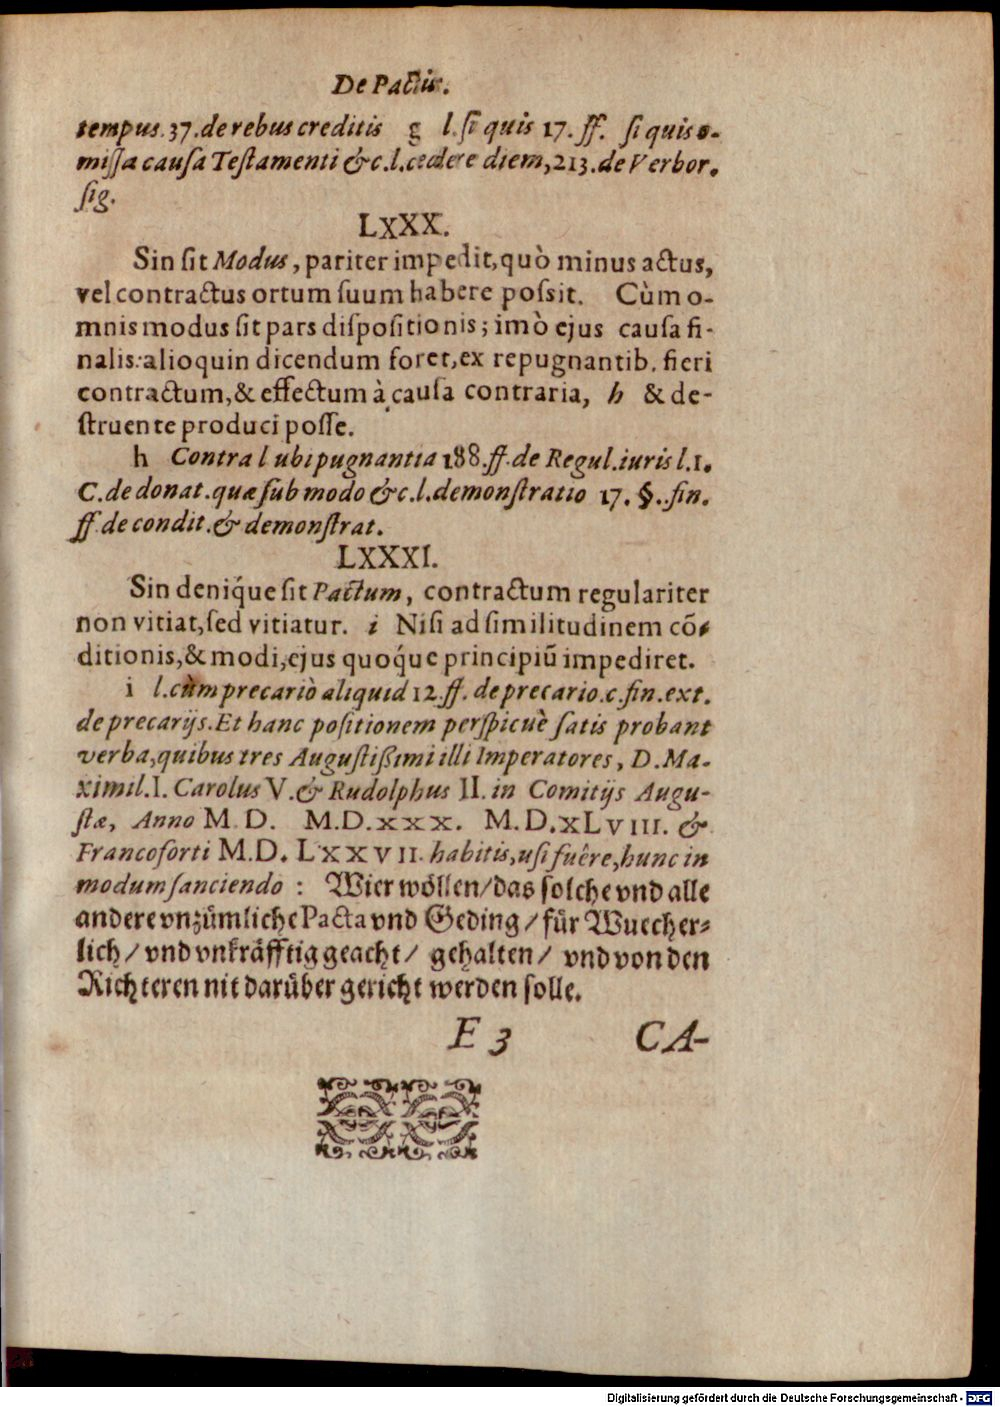 De Pactis.
tempus. 37. de rebus creditis g l. si quis 17. ff. si quis o-
missa causa Testamenti &c. l. cedere diem, 213. de Verbor.
sig.
LXXX.
Sin sit Modus, pariter impedit, quò minus actus,
vel contractus ortum suum habere possit. Cùm o-
mnis modus sit pars dispositionis; imò ejus causa fi-
nalis: alioquin dicendum foret, ex repugnantib. fieri
contractum, & effectum à causa contraria, h & de-
struente produci posse.
h Contra l ubi pugnantia 188. ff. de Regul. iuris l. 1.
C. de donat. quæ sub modo &c. l. demonstratio 17. §. fin.
ff. de condit. & demonstrat.
LXXXI.
Sin deniq́ue sit Pactum, contractum regulariter
non vitiat, sed vitiatur. i Nisi ad similitudinem cõ-
ditionis, & modi, ejus quoq́ue principiũ impediret.
i l. cùm precariò aliquid 12. ff. de precario. c. fin. ext.
de precarijs. Et hanc positionem perspicuè satis probant
verba, quibus tres Augustißimi illi Imperatores, D. Ma-
ximil. I. Carolus V. & Rudolphus II. in Comitijs Augu-
stæ, Anno M. D. M. D. XXX. M. D. XLVIII. &
Francoforti M. D. LXXVII. habitis, usi fuêre, hunc in
modum sanciendo : Wier wöllen / das solche vnd alle
andere vnzümliche Pacta vnd Geding / für Wuecher-
lich / vnd vnkräfftig geacht / gehalten / vnd von den
Richteren nit darüber gericht werden solle.
E 3 CA-
Digitalisierung gefördert durch die Deutsche Forschungsgemeinschaft - DFG